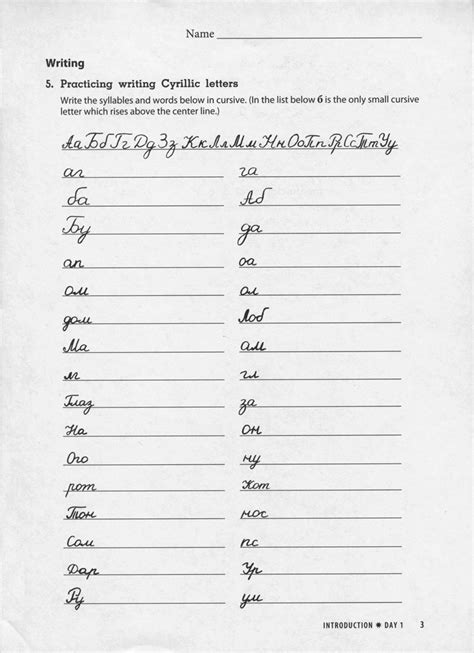 Name
Writing
5. Practicing writing Cyrillic letters
Write the syllables and words below in cursive. (In the list below б is the only small cursive
letter which rises above the center line.)
Аа Бб Гг Дд Зз Кк Лл Мм Нн Оо Пп Рр Сс Тт Уу
аг га
ба Аб
Бу да
ап оа
ом ол
дом Лоб
Ма ам
м гл
Глаз за
На он
Ого ну
рот Кот
Тон нос
Сом пс
Дар Ур
Ру ум
INTRODUCTION ✷ DAY 1 3